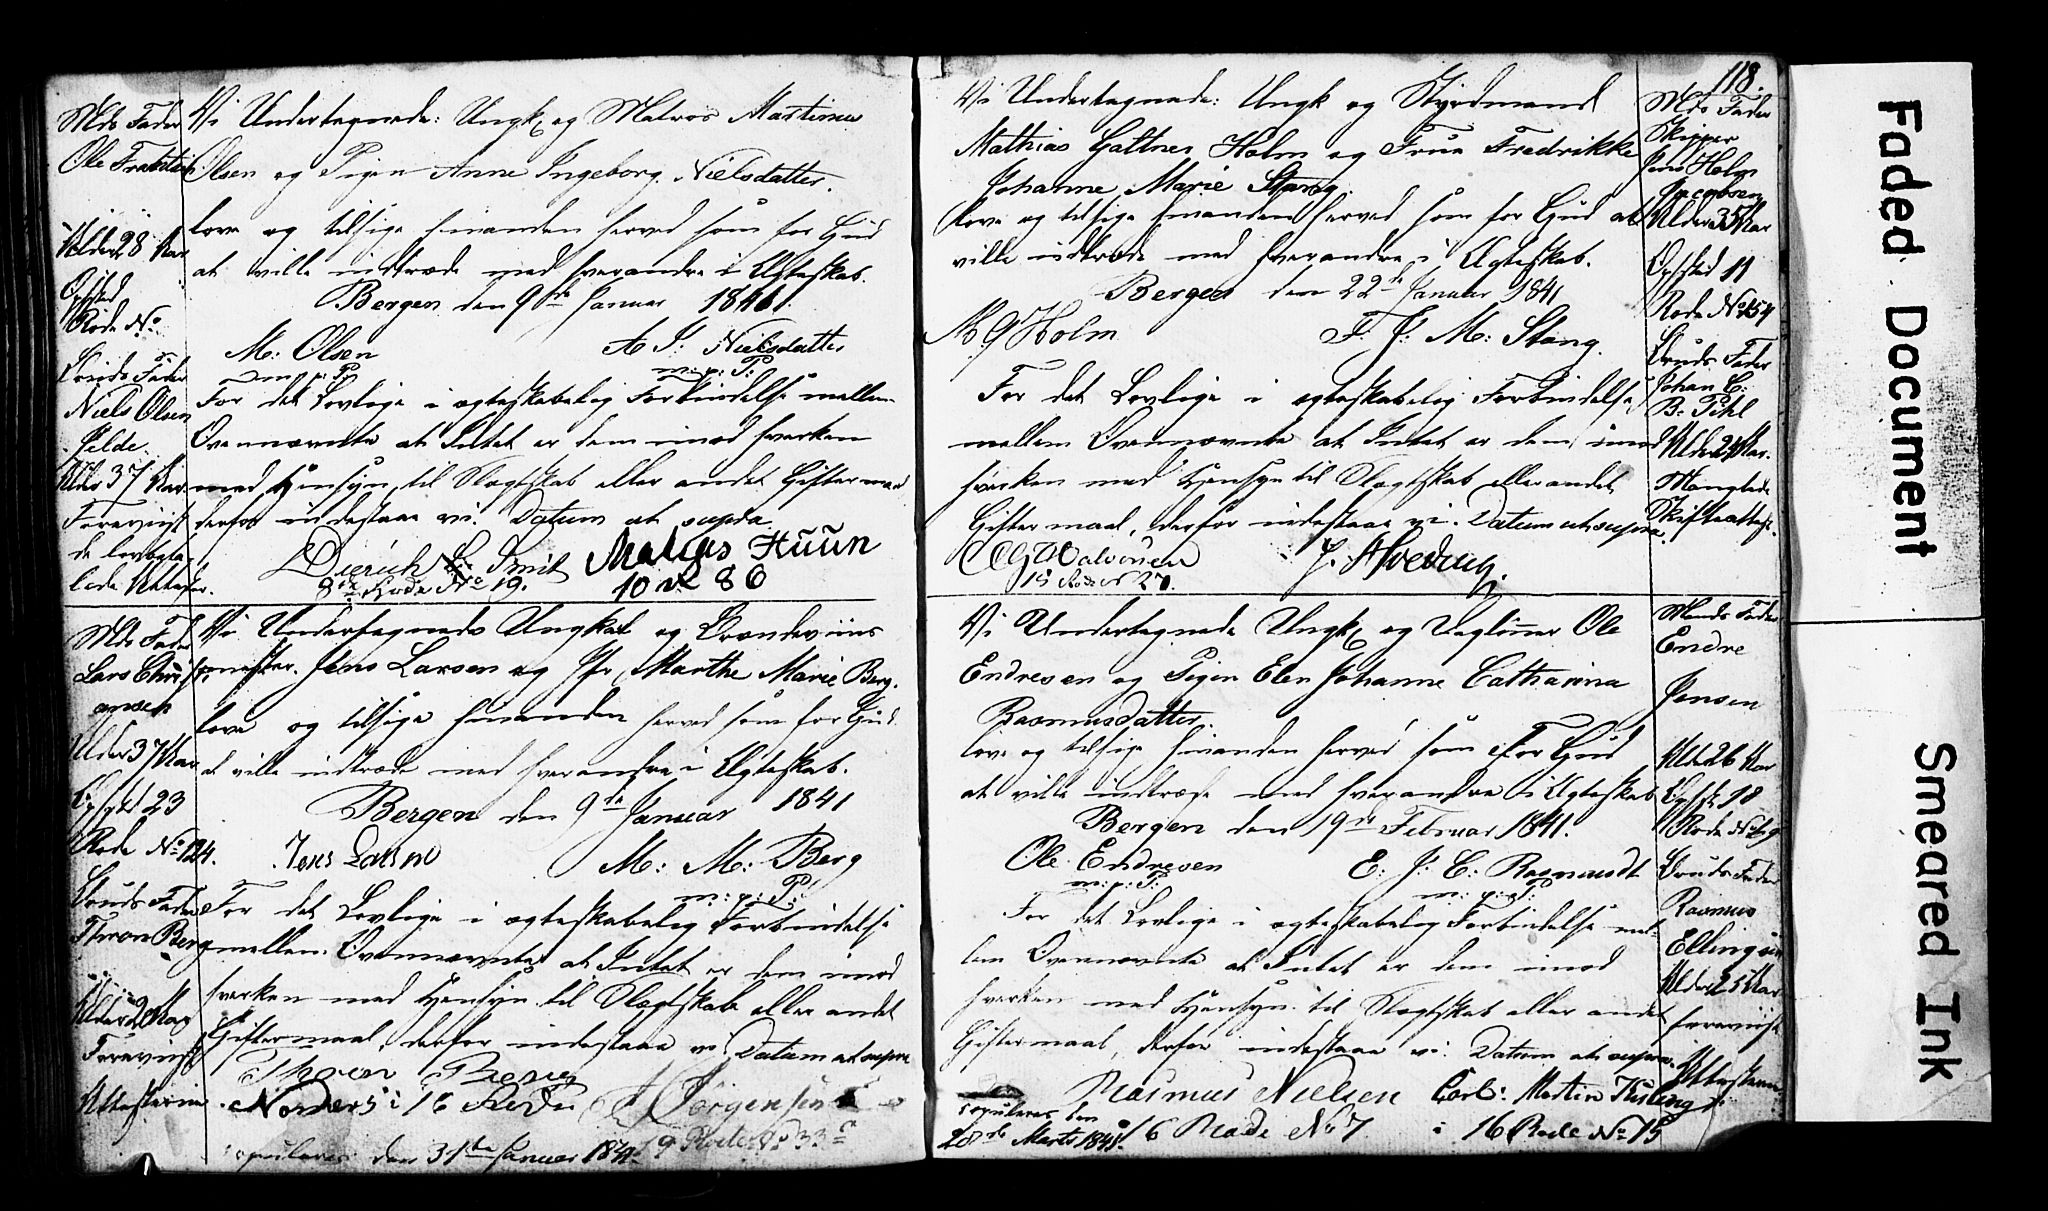 Mds Fader
Ole Fredrik
Alder 28 Aar
Opfsted
Rode No
Bruds Fader
Niels Olsen
Jelde
Alder 37 Aar
Foreviist
de lovbefa-
lede Attester.
Vi Undertegnede: Ungk. og Matros Martinus
Olsen og Pigen Anne Ingeborg Nielsdatter.
love og tilsige hinanden herved som for Gud
at ville indtræde med hverandre i Ægteskab.
Bergen den 9de Januar 1841.
M: Olsen A I: Nielsdatter
m: p: P: m: p: P:
For det Lovlige i ægteskabelig Forbindelse mellem
Ovennævnte at Intet er dem imod hverken
med Hensyn til Slægtskab eller andet Giftermaal
derfor indestaae vi. Datum ut supra.
Dierich Smit Matias Huun
8de Rode No 19. 10 R 86
Mds Fader
Lars Christ-
ansen
Alder 37 Aar
Opfsted 23
Rode No 124.
Bruds Fader
Thron Berg
Alder Aar
Foreviist
Attesterne
Vi Undertegnede Ungkal og Brændeviins
mester Jens Larsen og Jfr. Marthe Marie Berg.
love og tilsige hinanden herved som for Gud
at ville indtræde med hverandre i Ægteskab.
Bergen den 9de Januar 1841
Jens Larsen M: M: Berg
m: p: P:
For det Lovlige i ægteskabelig Forbindelse
mellem Ovennævnte at Intet er dem imod
hverken med Hensyn til Slægtskab eller andet
Giftermaal, derfor indestaae vi Datum ut supra
Thron Berg
i 16 Rode Jørgensen
9 Rode No 33
copuleres den 31te Januar 1841.
118.
Vi Undertegnede: Ungk og Styrdmand
Mathias Gattner Holm og Frue Fredrikke
Johanne Marie Stang.
love og tilsige hinanden herved som for Gud at
ville indtræde med hverandre i Ægteskab.
Bergen den 22de Januar 1841
M G Holm F. J: M: Stang.
For det Lovlige i ægteskabelig Forbindelse
mellem Ovennævnte at Intet er dem imod
hverken med Hensyn til Slægtskab eller andet
Giftermaal, derfor indestaae vi. Datum ut supra.
Halvorsen
15 Rode No 27.
Mds Fader
Skipper
Jens Holm
Jacobsen
Alder 35 Aar
Opfsted 11
Rode No 154
Bruds Fader
Johan C:
B. Pihl
Alder Aar.
Manglede
Skifteattest.
Vi Undertegnede Ungk og Dagløner Ole
Endresen og Pigen Elen Johanne Catharina
Rasmusdatter.
love og tilsige hinanden herved som for Gud
at ville indtræde med hverandre i Ægteskab
Bergen den 19de Februar 1841.
Ole Endresen E: J: C: Rasmusdt
m: p: P: m: p: P:
For det Lovlige i ægteskabelig Forbindelse mel-
lem Ovennævnte at Intet er dem imod
hverken med Hensyn til Slægtskab eller andet
Giftermaal, derfor indestaae vi. Datum ut supra.
Rasmus Nielsen Carl: Martin
16 Rode No 7 i 16 Rode No 15
copuleres den
28de Marts 1841.
Mands Fader
Endre
Jensen
Alder 26 Aar
Opfsted 18
Rode No 69
Bruds Fader
Rasmus
Ellingsen
Alder 25 Aar
foreviist
Attesterne
Faded Document
Smeared Ink